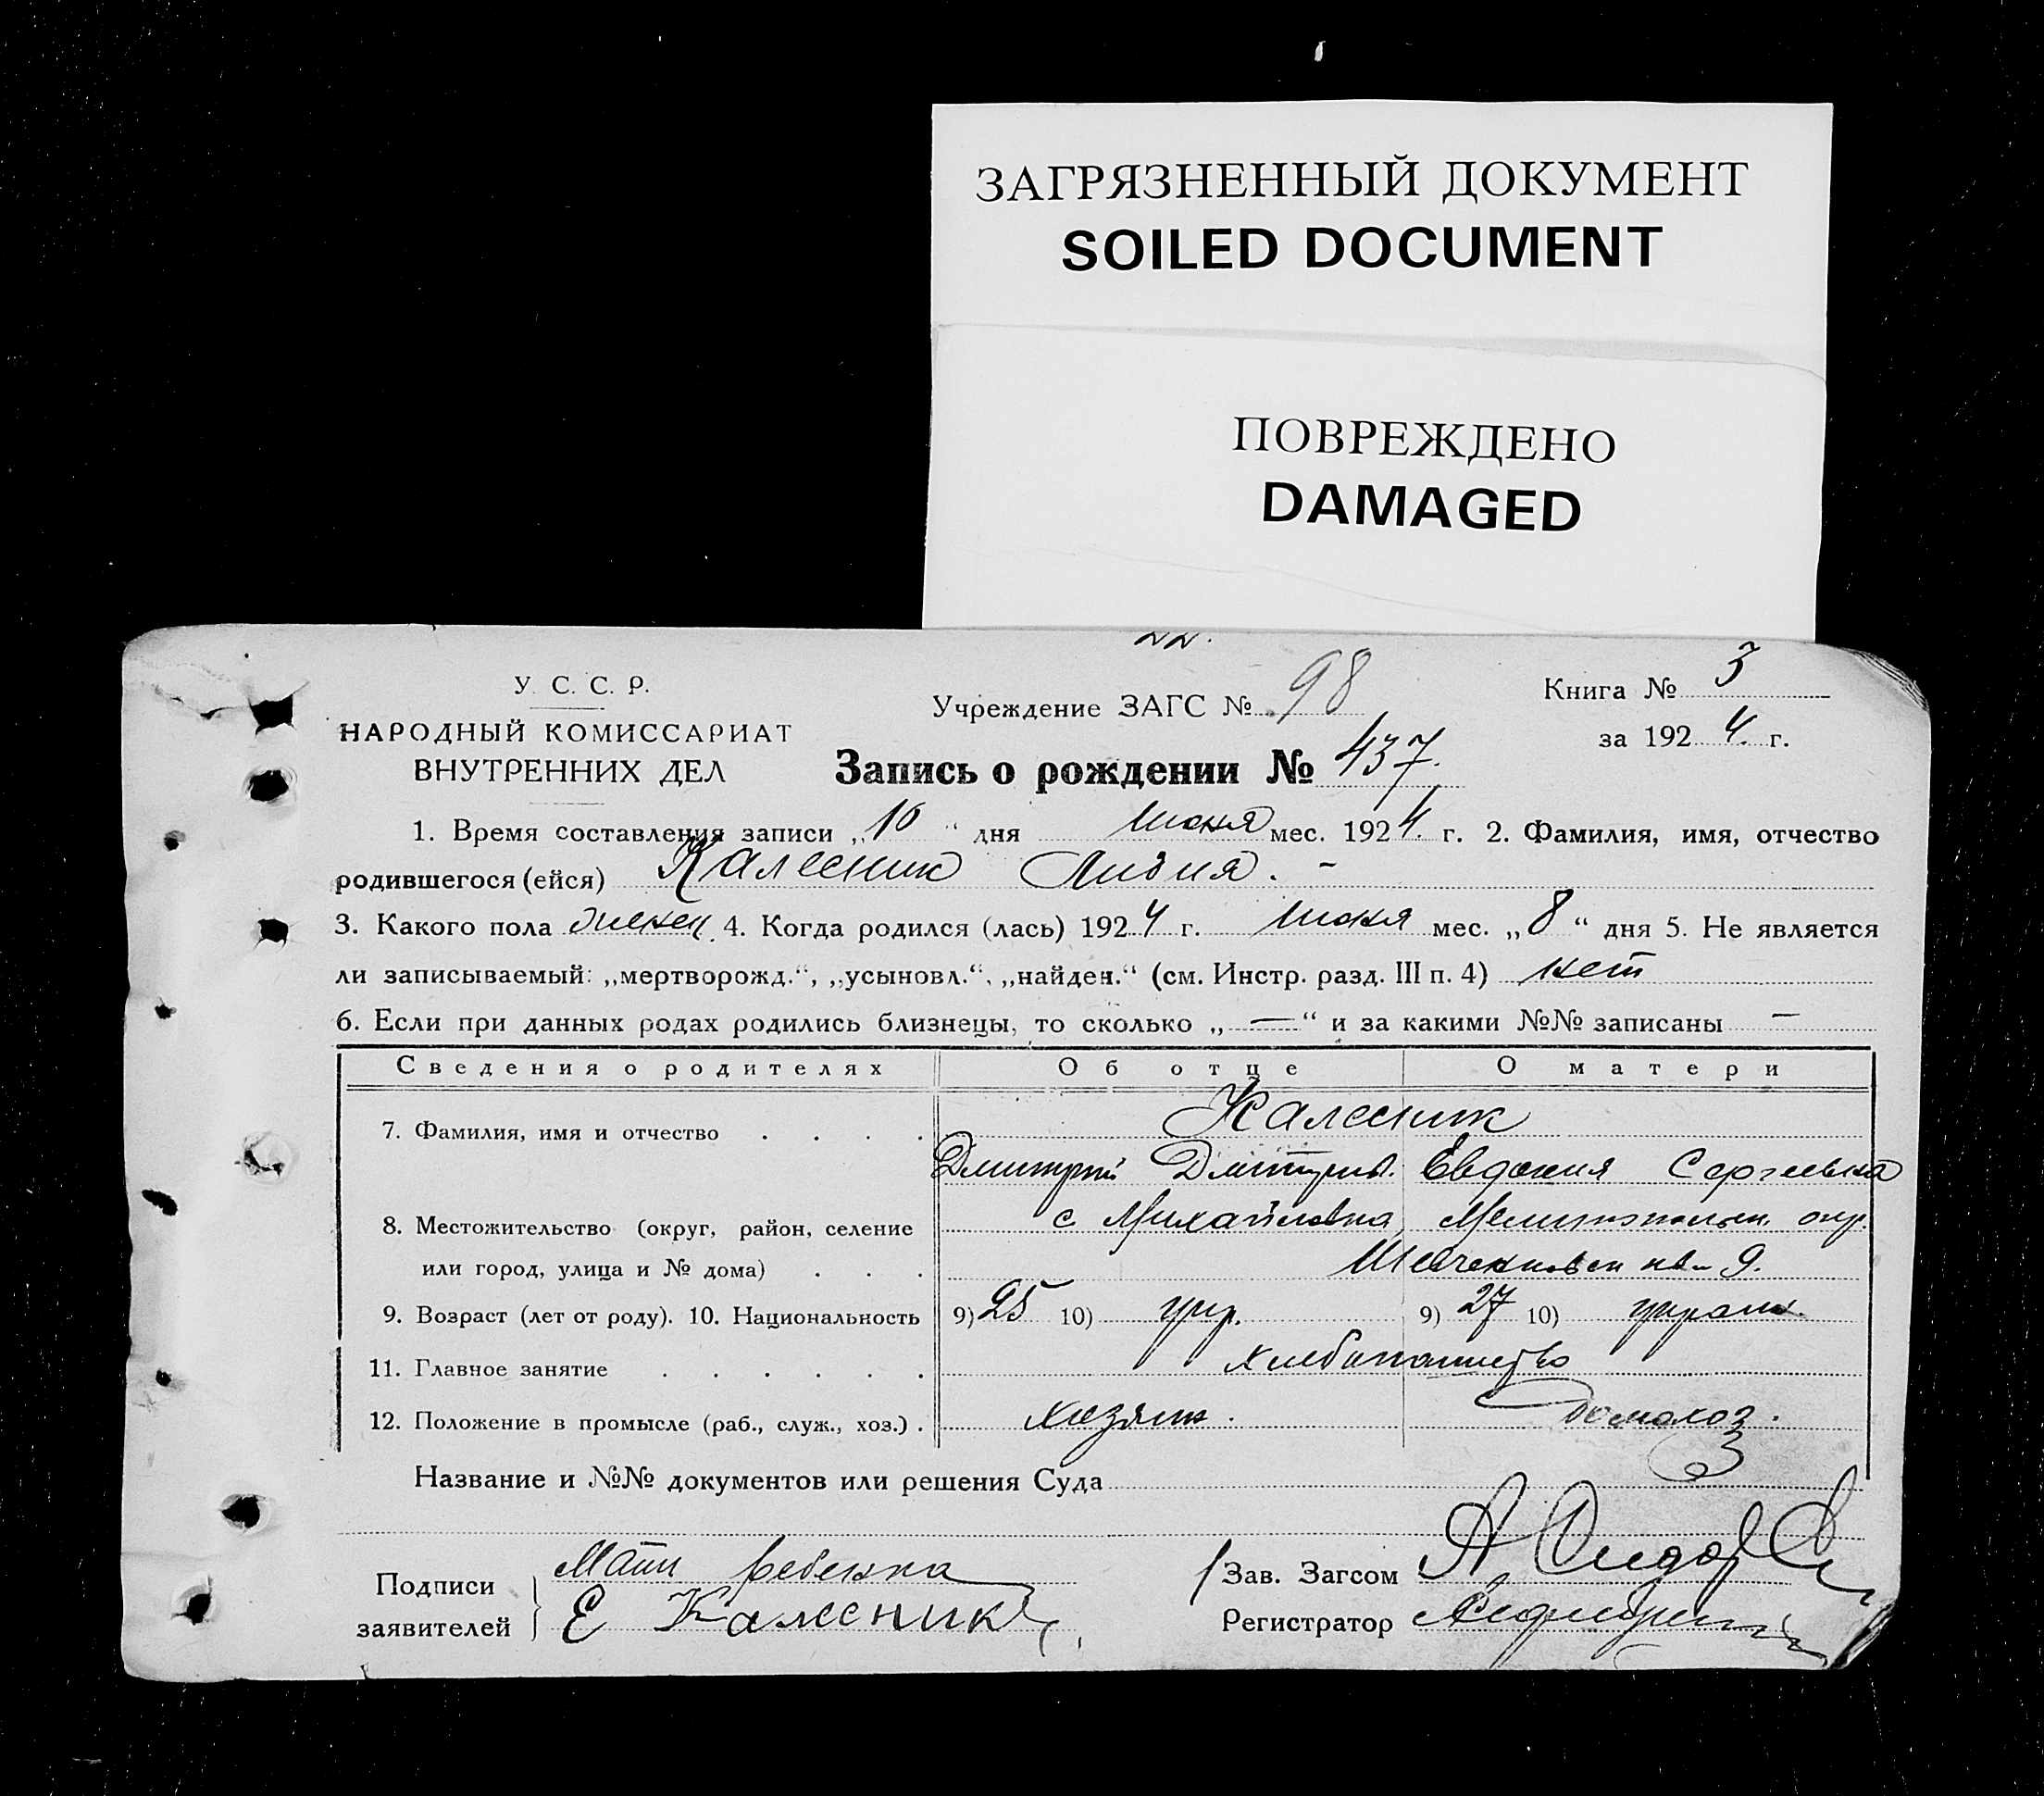 ЗАГРЯЗНЕННЫЙ ДОКУМЕНТ
SOILED DOCUMENT
ПОВРЕЖДЕНО
DAMAGED
У. С. С. Р.
НАРОДНЫЙ КОМИССАРИАТ
ВНУТРЕННИХ ДЕЛ
Учреждение ЗАГС № 98
Книга № 3
за 1924 г.
Запись о рождении № 437.
1. Время составления записи „10“ дня июня мес. 1924 г. 2. Фамилия, имя, отчество
родившегося (ейся) Калесник Лидия. -
3. Какого пола женск. 4. Когда родился (лась) 1924 г. июня мес. „8“ дня 5. Не является
ли записываемый: „мертворожд.“, „усыновл.“, „найден.“ (см. Инстр. разд. III п. 4) нет
6. Если при данных родах родились близнецы, то сколько „—“ и за какими №№ записаны —
Сведения о родителях Об отце О матери
7. Фамилия, имя и отчество . . . . Калесник
Дмитрий Дмитриев. Евдокия Сергеевна
8. Местожительство (округ, район, селение с Михайловка, Мелитопольск. окр.
или город, улица и № дома) . . .
9. Возраст (лет от роду). 10. Национальность 9) 25 10) укр. 9) 27 10) украин.
11. Главное занятие . . . . . . хлебопашество
12. Положение в промысле (раб., служ., хоз.) . хозяин. домохоз.
Название и №№ документов или решения Суда
Подписи заявителей
Мать ребенка
Е Калесник
Зав. Загсом
Регистратор